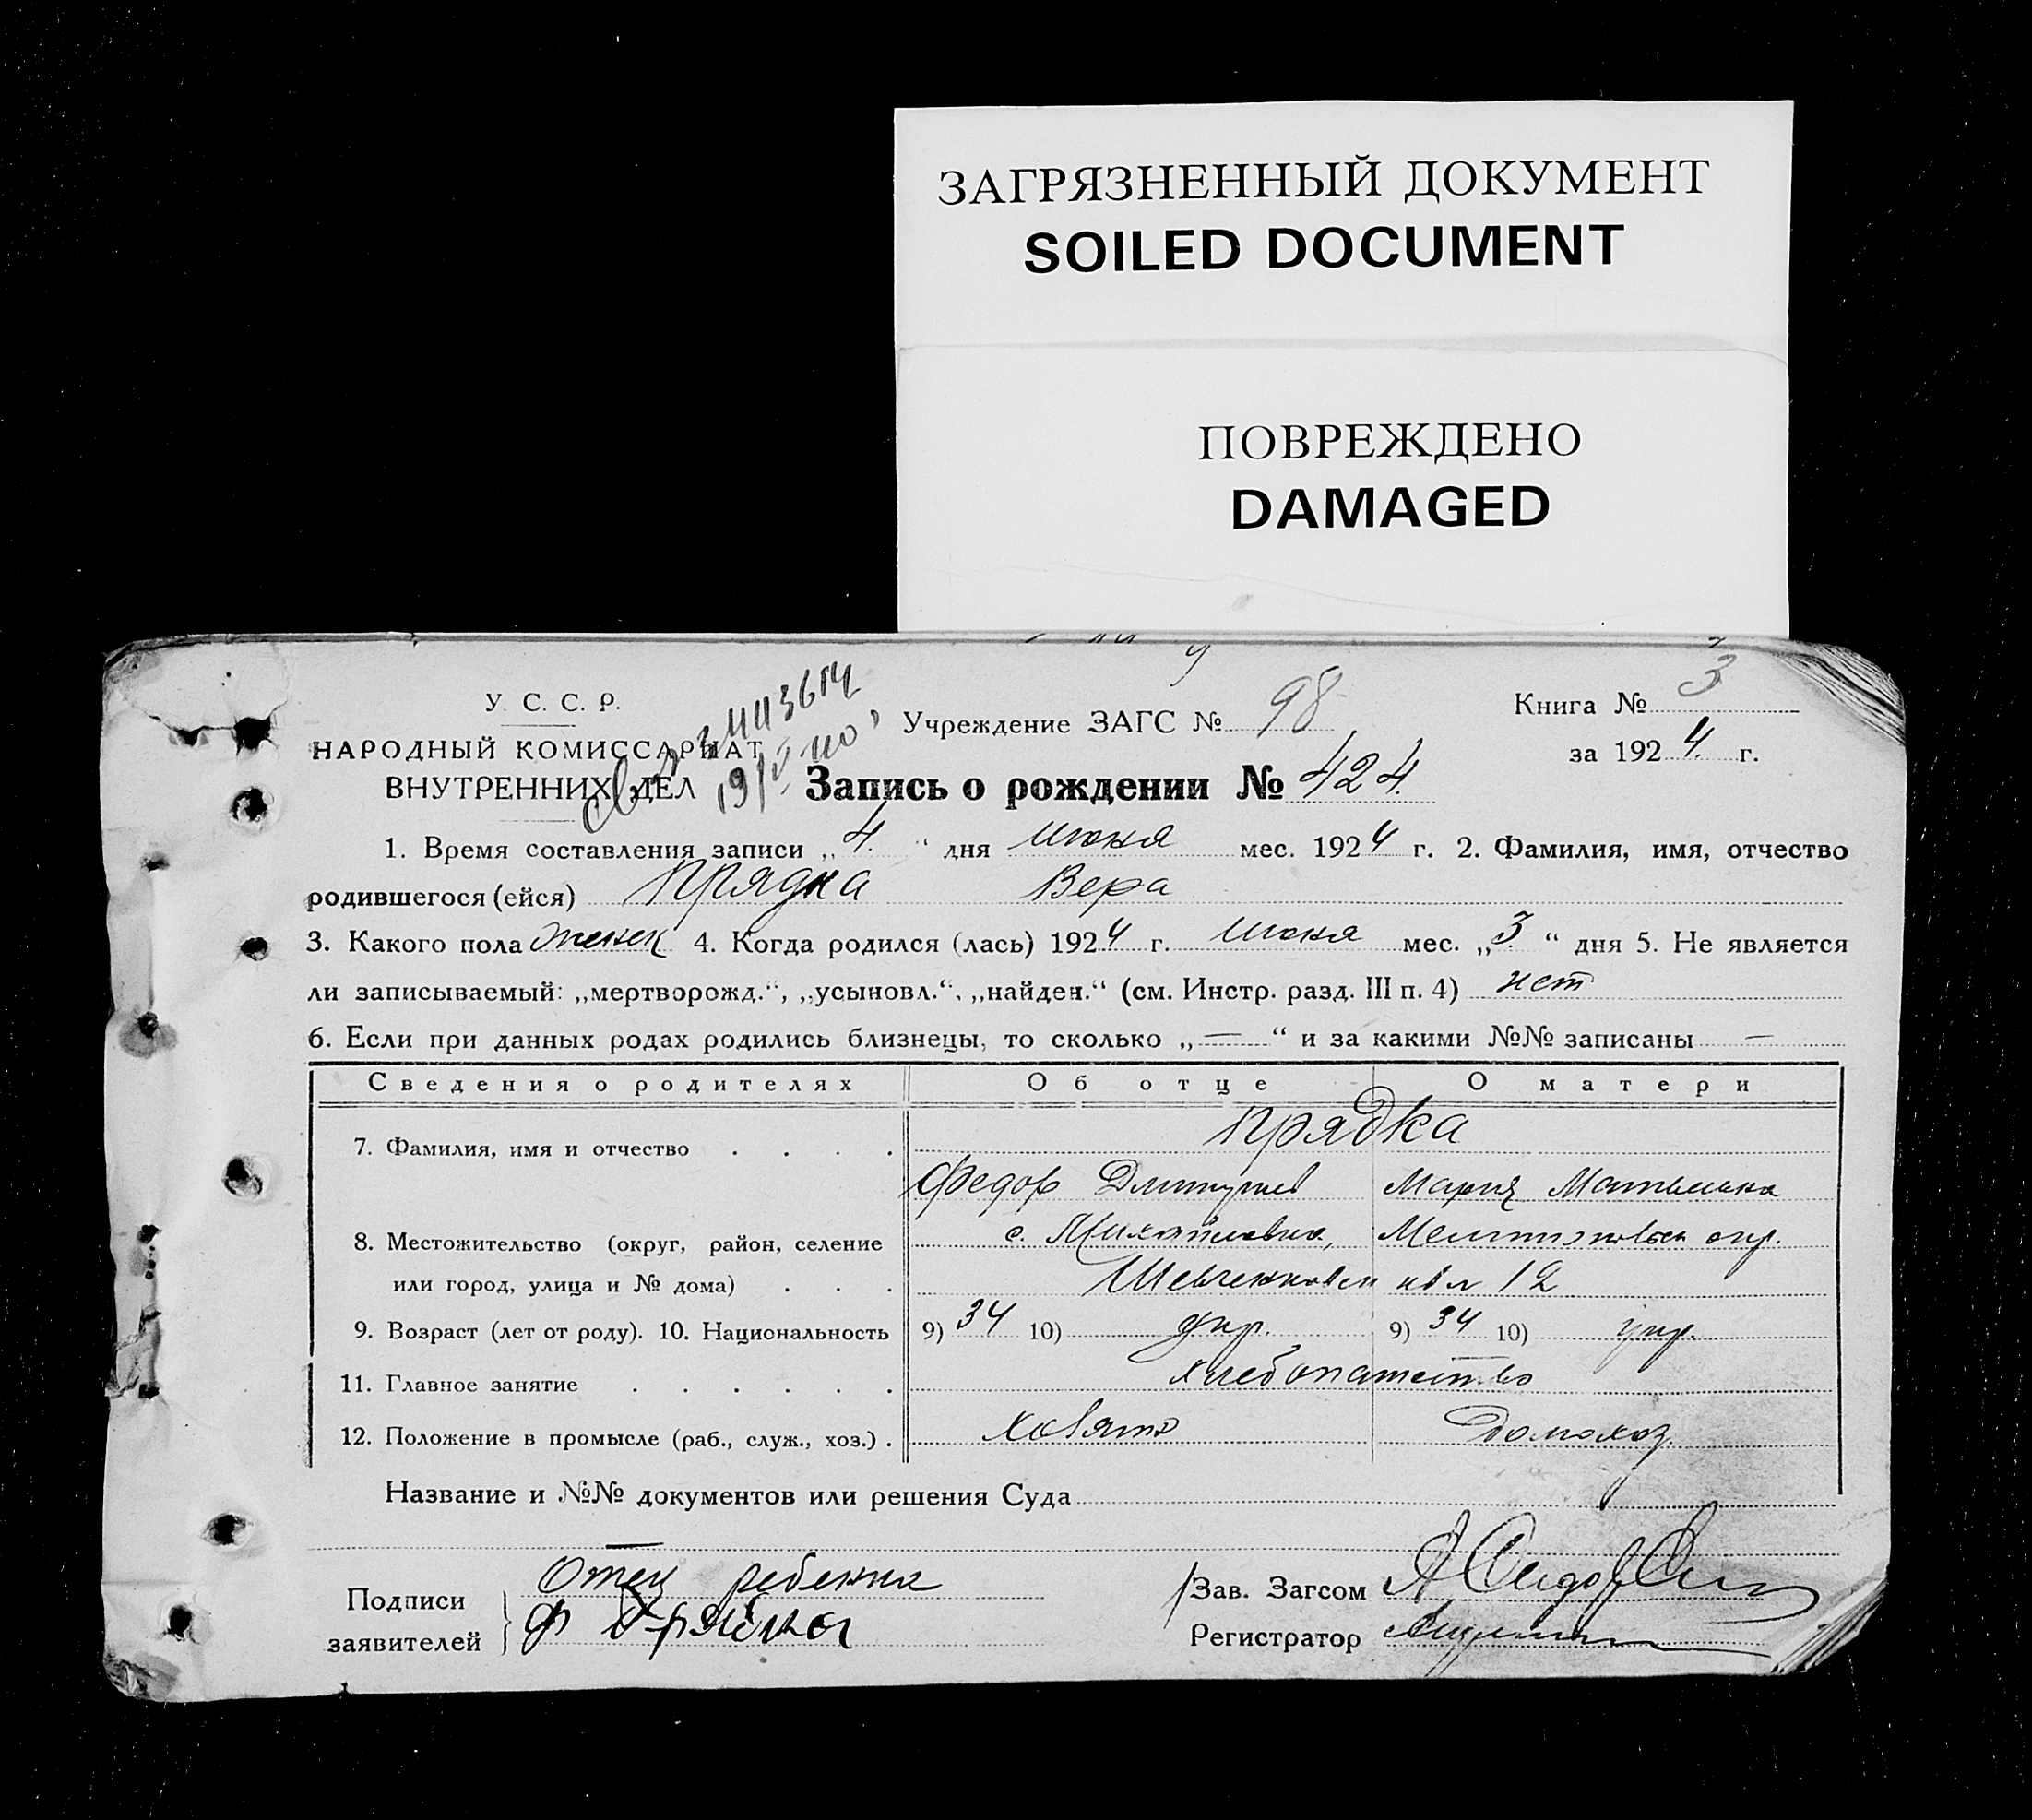 ЗАГРЯЗНЕННЫЙ ДОКУМЕНТ
SOILED DOCUMENT
ПОВРЕЖДЕНО
DAMAGED
У. С. С. Р.
НАРОДНЫЙ КОМИССАРИАТ
ВНУТРЕННИХ ДЕЛ
Учреждение ЗАГС № 98
Книга № 3
за 1924 г.
Запись о рождении № 424
1. Время составления записи „4“ дня июня мес. 1924 г. 2. Фамилия, имя, отчество
родившегося (ейся) Прядка Вера
3. Какого пола женск 4. Когда родился (лась) 1924 г. июня мес. „3“ дня 5. Не является
ли записываемый: „мертворожд.“, „усыновл.“, „найден.“ (см. Инстр. разд. III п. 4) нет
6. Если при данных родах родились близнецы, то сколько „—“ и за какими №№ записаны —
Сведения о родителях Об отце О матери
7. Фамилия, имя и отчество Прядка
Федор Мария
8. Местожительство (округ, район, селение с. Михайловка, окр.
или город, улица и № дома) 12
9. Возраст (лет от роду). 10. Национальность 9) 34 10) укр. 9) 34 10) укр.
11. Главное занятие хлебопашество
12. Положение в промысле (раб., служ., хоз.) домохоз.
Название и №№ документов или решения Суда
Подписи заявителей Отец ребенка
Ф Прядка
Зав. Загсом
Регистратор